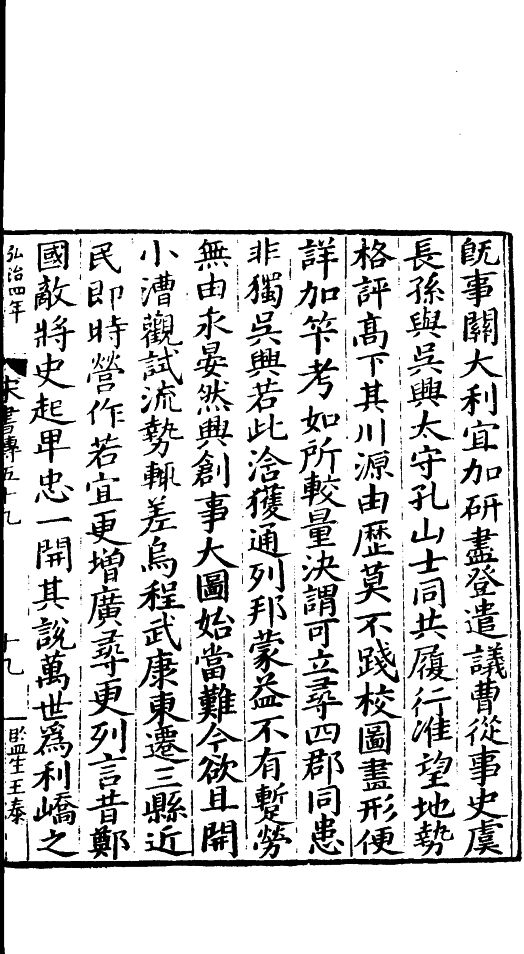 旣事關大利宜加研盡登遣議曹從事史虞
長孫與吳興太守孔山士同共履行准望地勢
格評髙下其川源由歷莫不踐校圖畫形便
詳加筭考如所較量決謂可立尋四郡同患
非獨吳興若此洽獲通列邦蒙益不有蹔勞
無由永晏然興創事大圖始當難今欲且開
小漕觀試流勢輒差烏程武康東遷三縣近
民即時營作若宜更增廣尋更列言昔鄭
國敵將史起畢忠一開其說萬世爲利嶠之
弘治四年 宋書傳五十九 十九 監生王泰